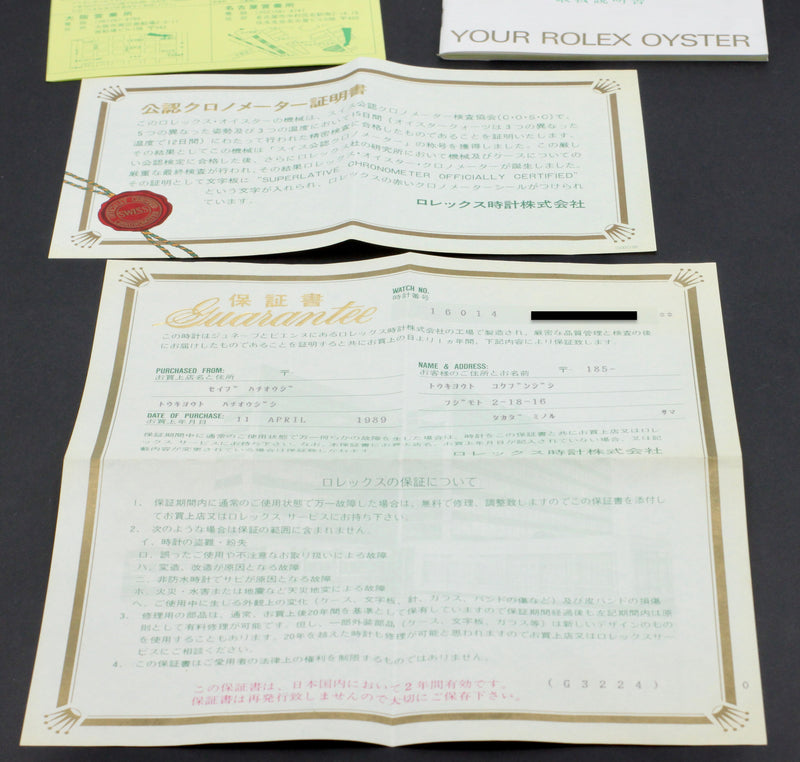 大阪営業所
名古屋営業所
取扱説明書
YOUR ROLEX OYSTER
公認クロノメーター証明書
このロレックス・オイスターの機械は、スイス公認クロノメーター検査協会(C・O・S・C)で、
5つの異なった姿勢及び3つの温度において15日間(オイスタークォーツは3つの異なった
温度で12日間)にわたって行われた精密検査に合格したものであることを証明いたします。
その結果としてこの機械は「スイス公認クロノメーター」の称号を獲得しました。この厳し
い公認検定に合格した後、さらにロレックス社の研究所において機械及びケースについての
厳重な最終検査が行われ、その結果ロレックス・オイスター・クロノメーターが誕生しました。
その証明として文字板に"SUPERLATIVE CHRONOMETER OFFICIALLY CERTIFIED"
という文字が入れられ、ロレックスの赤いクロノメーターシールがつけられ
ています。
SWISS
ロレックス時計株式会社
保証書
Guarantee
WATCH NO.
時計番号
16014
この時計はジュネーブとビエンヌにあるロレックス時計株式会社の工場で製造され、厳密な品質管理と検査の後
にお届けしたものであることを証明すると共にお買上の日より1ヵ年間、下記内容により保証致します。
PURCHASED FROM:
お買上店名と住所
〒-
NAME & ADDRESS:
お客様のご住所とお名前
〒- 185-
セイブ ハチオウジ
トウキヨウト コクブンジシ
トウキヨウト ハチオウジシ
フジモト 2-18-16
DATE OF PURCHASE:
お買上年月日
11 APRIL 1989
タカダ ミノル サマ
保証期間中に通常のご使用状態で万一何らかの故障を生した場合は、時計をこの保証書と共にお買上店又はロレ
ックス サービスにお持ち下さい。なお、本保証書にお買上店名、お買上年月日が記入されていない場合、又は記
載内容が変更されている場合は保証致しかねます。
ロレックス時計株式会社
ロレックスの保証について
1. 保証期間内に通常のご使用状態で万一故障した場合は、無料で修理、調整致しますのでこの保証書を添付し
てお買上店又はロレックス サービスにお持ち下さい。
2. 次のような場合は保証の範囲に含まれません。
イ. 時計の盗難・紛失
ロ. 誤ったご使用や不注意なお取り扱いによる故障
ハ. 変造、改造が原因となる故障
ニ. 非防水時計でサビが原因となる故障
ホ. 火災・水害または地震など天災地変による故障
ヘ. ご使用中に生じる外観上の変化(ケース、文字板、針、ガラス、バンドの傷など)及び皮バンドの損傷
3. 修理用の部品は、通常、お買上後20年間を基準として保有していますので保証期間経過後も左記期間内は原
則として有料修理が可能です。但し、一部外装部品(ケース、文字板、ガラス等)は新しいデザインのもの
を使用することもあります。20年を越えた時計も修理が可能と思われますのでお買上店又はロレックスサー
ビスにご相談ください。
4. この保証書はご愛用者の法律上の権利を制限するものではありません。
この保証書は、日本国内において2年間有効です。
保証書は再発行致しませんので大切にご保存下さい。
(G3224)